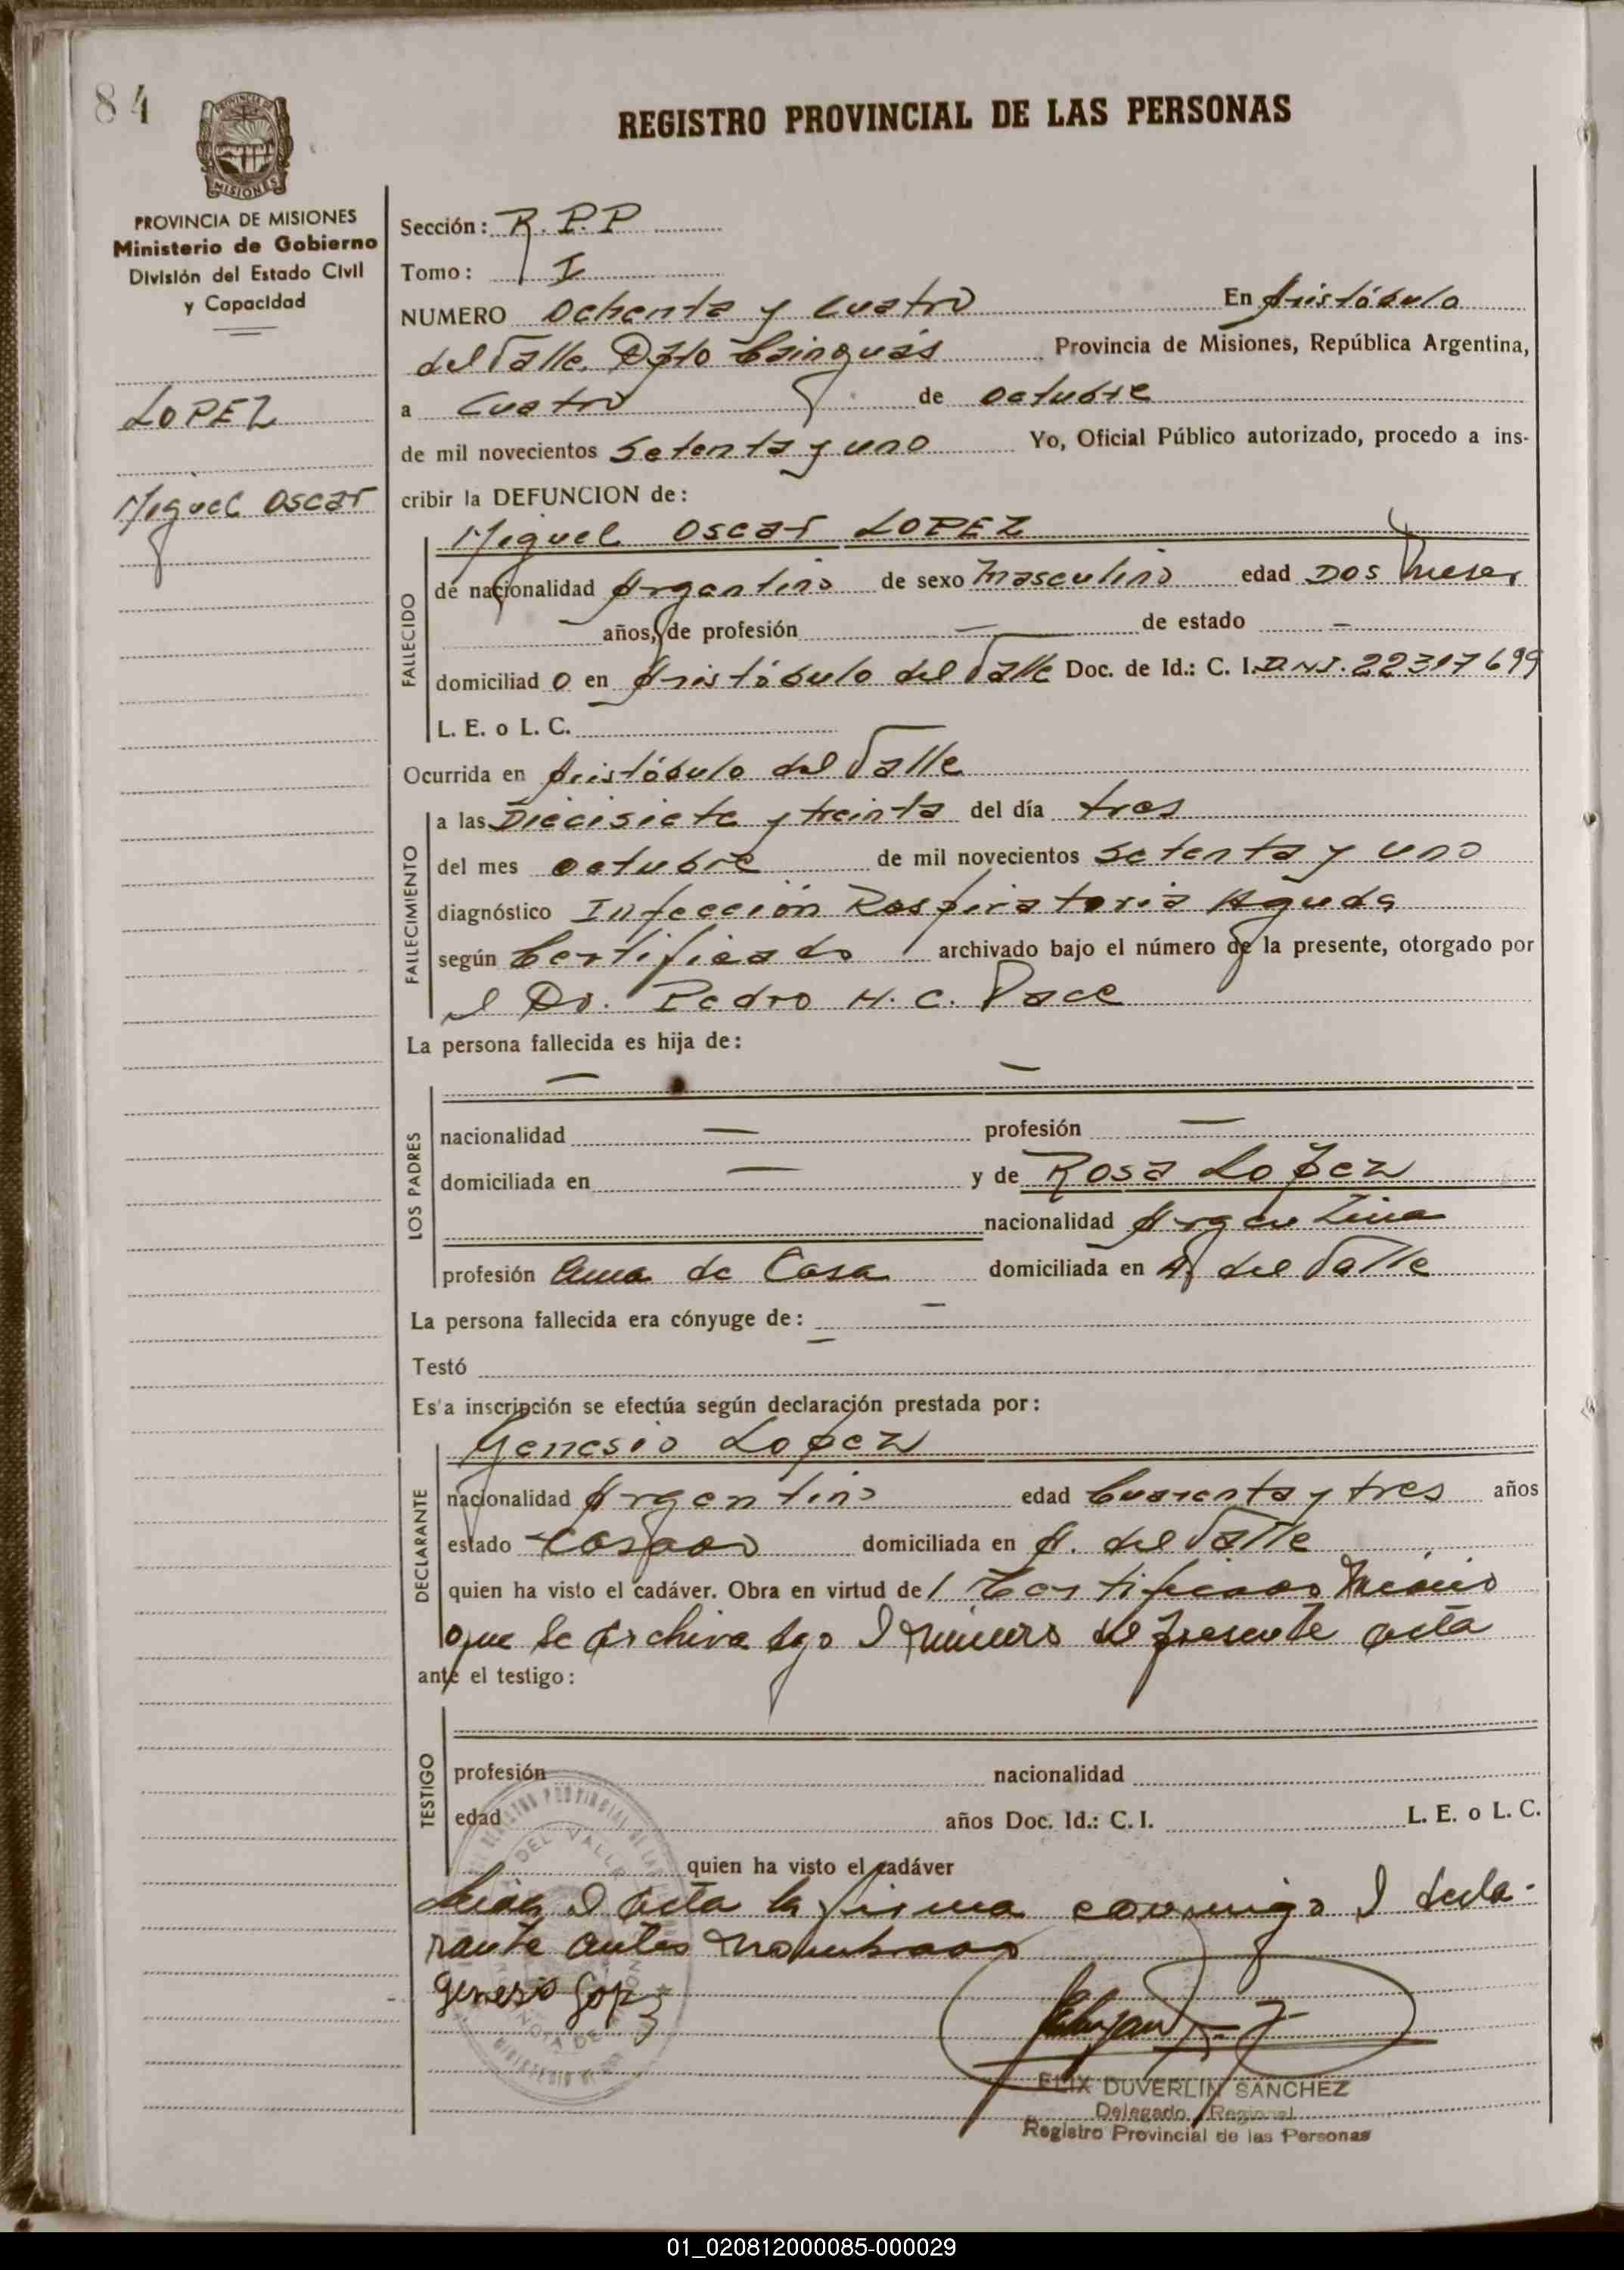 84
PROVINCIA DE
MISIONES
REGISTRO PROVINCIAL DE LAS PERSONAS
PROVINCIA DE MISIONES
Ministerio de Gobierno
División del Estado Civil
y Capacidad
LOPEZ
Miguel Oscar
Sección: R.P.P
Tomo: I
NUMERO Ochenta y cuatro En Aristóbulo
del Valle. Dpto Cainguás Provincia de Misiones, República Argentina,
a cuatro de octubre
de mil novecientos setenta y uno Yo, Oficial Público autorizado, procedo a ins-
cribir la DEFUNCION de:
Miguel Oscar LOPEZ
FALLECIDO
de nacionalidad Argentino de sexo masculino edad DOS meses
años, de profesión — de estado —
domiciliad o en Aristóbulo del Valle Doc. de Id.: C. I. D.N.I. 22317699
L. E. o L. C.
Ocurrida en Aristóbulo del Valle
FALLECIMIENTO
a las Diecisiete y treinta del día tres
del mes octubre de mil novecientos setenta y uno
diagnóstico Infección Respiratoria Aguda
según Certificado archivado bajo el número de la presente, otorgado por
el Dr. Pedro H. C. Pace
La persona fallecida es hija de:
— —
LOS PADRES
nacionalidad — profesión —
domiciliada en — y de Rosa Lopez
nacionalidad Argentina
profesión Ama de Casa domiciliada en A. del Valle
La persona fallecida era cónyuge de: —
Testó —
Es'a inscripción se efectúa según declaración prestada por:
Genesio Lopez
DECLARANTE
nacionalidad Argentino edad Cuarenta y tres años
estado casado domiciliada en A. del Valle
quien ha visto el cadáver. Obra en virtud de 1 Certificado Médico
que se archiva bajo el número de presente acta
ante el testigo:
TESTIGO
profesión nacionalidad
edad años Doc. Id.: C. I. L. E. o L. C.
quien ha visto el cadáver
Leída el acta la firma conmigo el decla-
rante antes nombrado
Genesio Lopez
DEL VALLE
FELIX DUVERLIN SANCHEZ
Delegado Regional
Registro Provincial de las Personas
01_020812000085-000029